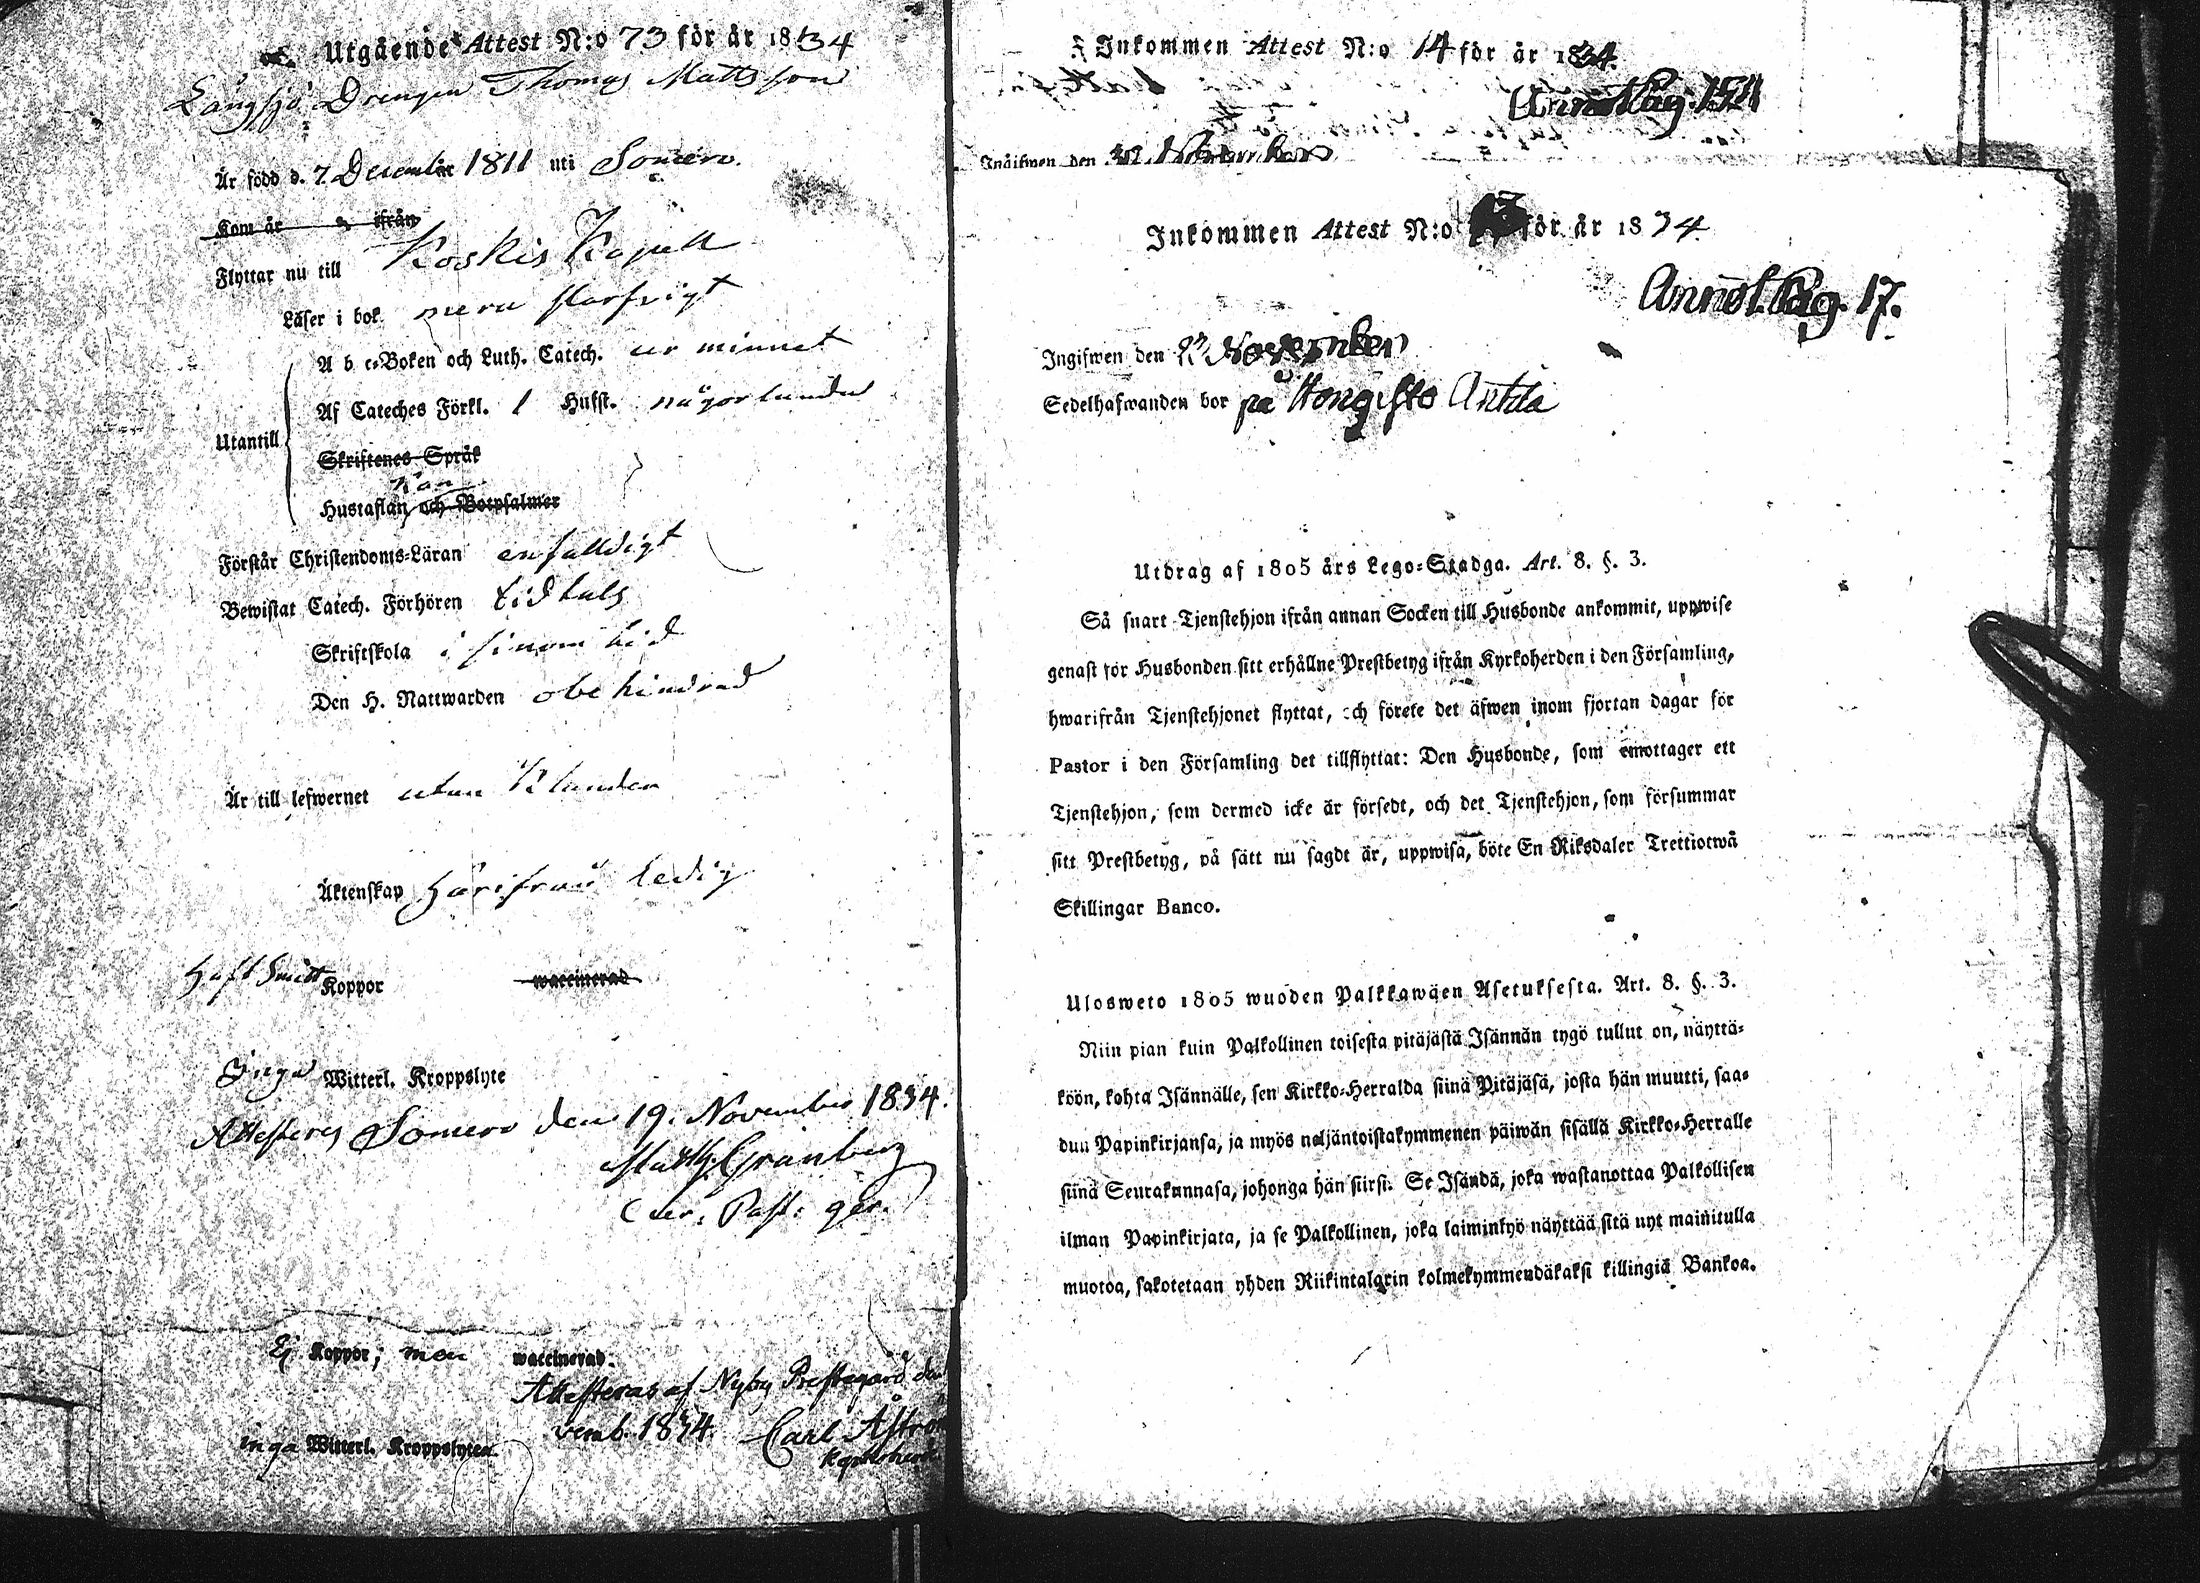 Utgående Attest N:o 73 för år 1834
Långsjö Drengen Thomas Mattsson
Är född d. 7. December 1811 uti Somero.
Kom år ifrån
Flyttar nu till Koskis Kapell
Läser i bok mera starfvigt
Utantill
A b c=Boken och Luth. Catech. ur minnet
Af Cateches Förkl. 1 Hufst. någorlunda
Skriftenes Språk
kan
Hustaflan och Botpsalmer
Förstår Christendoms=Läran enfalldigt
Bewistat Catech. Förhören tidtals
Skriftskola i sinom tid
Den H. Nattwarden obehindrad
Är till lefwernet utan klander
Äktenskap härifrån ledig
Haft Smitt Koppor waccinerad
Inga Witterl. Kroppslyte
Attesteras Somero den 19. November 1834.
Matth. Granberg
Past.
Ej Koppor; men waccinerad.
Attesteras af Nyby Prestegård den
vemb. 1834. Carl Åströ
inga Witterl. Kroppslyten
Inkommen Attest N:o 14 för år 1834.
Annot. Pag.
Ingifwen den November
Inkommen Attest N:o 13 för år 1834.
Annot. Pag. 17.
Ingifwen den November
Sedelhafwanden bor på Hongisto Anttila
Utdrag af 1805 års Lego=Stadga. Art. 8. §. 3.
Så snart Tjenstehjon ifrån annan Socken till Husbonde ankommit, uppwise
genast för Husbonden sitt erhållne Prestbetyg ifrån Kyrkoherden i den Församling,
hwarifrån Tjenstehjonet flyttat, och förete det äfwen inom fjortan dagar för
Pastor i den Församling det tillflyttat: Den Husbonde, som emottager ett
Tjenstehjon, som dermed icke är försedt, och det Tjenstehjon, som försummar
sitt Prestbetyg, på sätt nu sagdt är, uppwisa, böte En Riksdaler Trettiotwå
Skillingar Banco.
Ulosweto 1805 wuoden Palkkawäen Asetuksesta. Art. 8. §. 3.
Niin pian kuin Palkollinen toisesta pitäjästä Isännän tygö tullut on, näyttä=
köön, kohta Isännälle, sen Kirkko=Herralda siinä Pitäjäsä, josta hän muutti, saa=
dun Papinkirjansa, ja myös neljäntoistakymmenen päiwän sisällä Kirkko=Herralle
siinä Seurakunnasa, johonga hän siirsi. Se Isändä, joka wastanottaa Palkollisen
ilman Papinkirjata, ja se Palkollinen, joka laiminlyö näyttää sitä nyt mainitulla
muotoa, sakotetaan yhden Riikintalarin kolmekymmendäkaksi killingiä Bankoa.